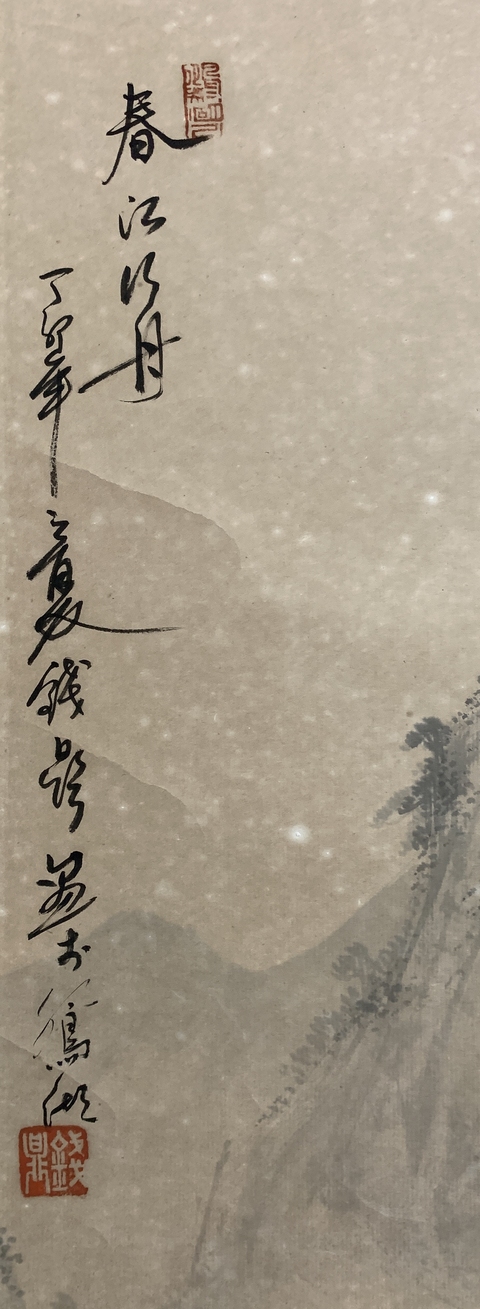 春江行舟
丁卯年夏錢鼎畫於鴛湖
錢鼎